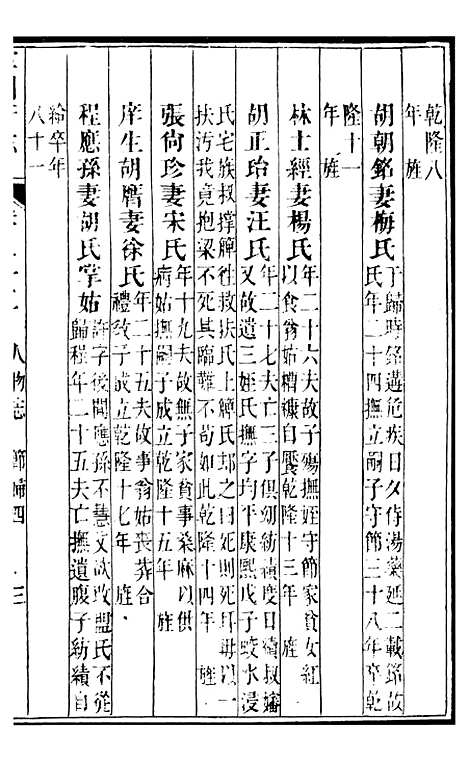 乾隆八
年 旌
胡朝銘妻梅氏 于歸時銘遘危疾日夕侍湯藥延二載銘故
氏年二十四撫立嗣子守節三十八年卒乾
隆十一
年 旌
林士經妻楊氏 年二十六夫故子殤撫姪守節家貧女紅
以食翁姑糟糠自饜乾隆十三年 旌
胡正珆妻汪氏 年二十七夫亡三子俱幼紡績度日後叔嬸
又故遺三姪氏撫字均平康熙戊子蛟水浸
氏宅族叔撑牌往救扶氏上牌氏却之曰死則死耳毋以一
扶污我竟抱梁不死其臨難不苟如此乾隆十四年 旌
張尙珍妻宋氏 年十九夫故無子家貧事桑麻以供
病姑撫嗣子成立乾隆十五年 旌
庠生胡㬏妻徐氏 年二十五夫故事翁姑喪葬合
禮敎子成立乾隆十七年 旌
程應孫妻胡氏掌姑 許字後聞應孫不慧父欲改盟氏不從
歸程年二十五夫亡撫遺腹子紡績自
給卒年
八十一
人物志 節婦四